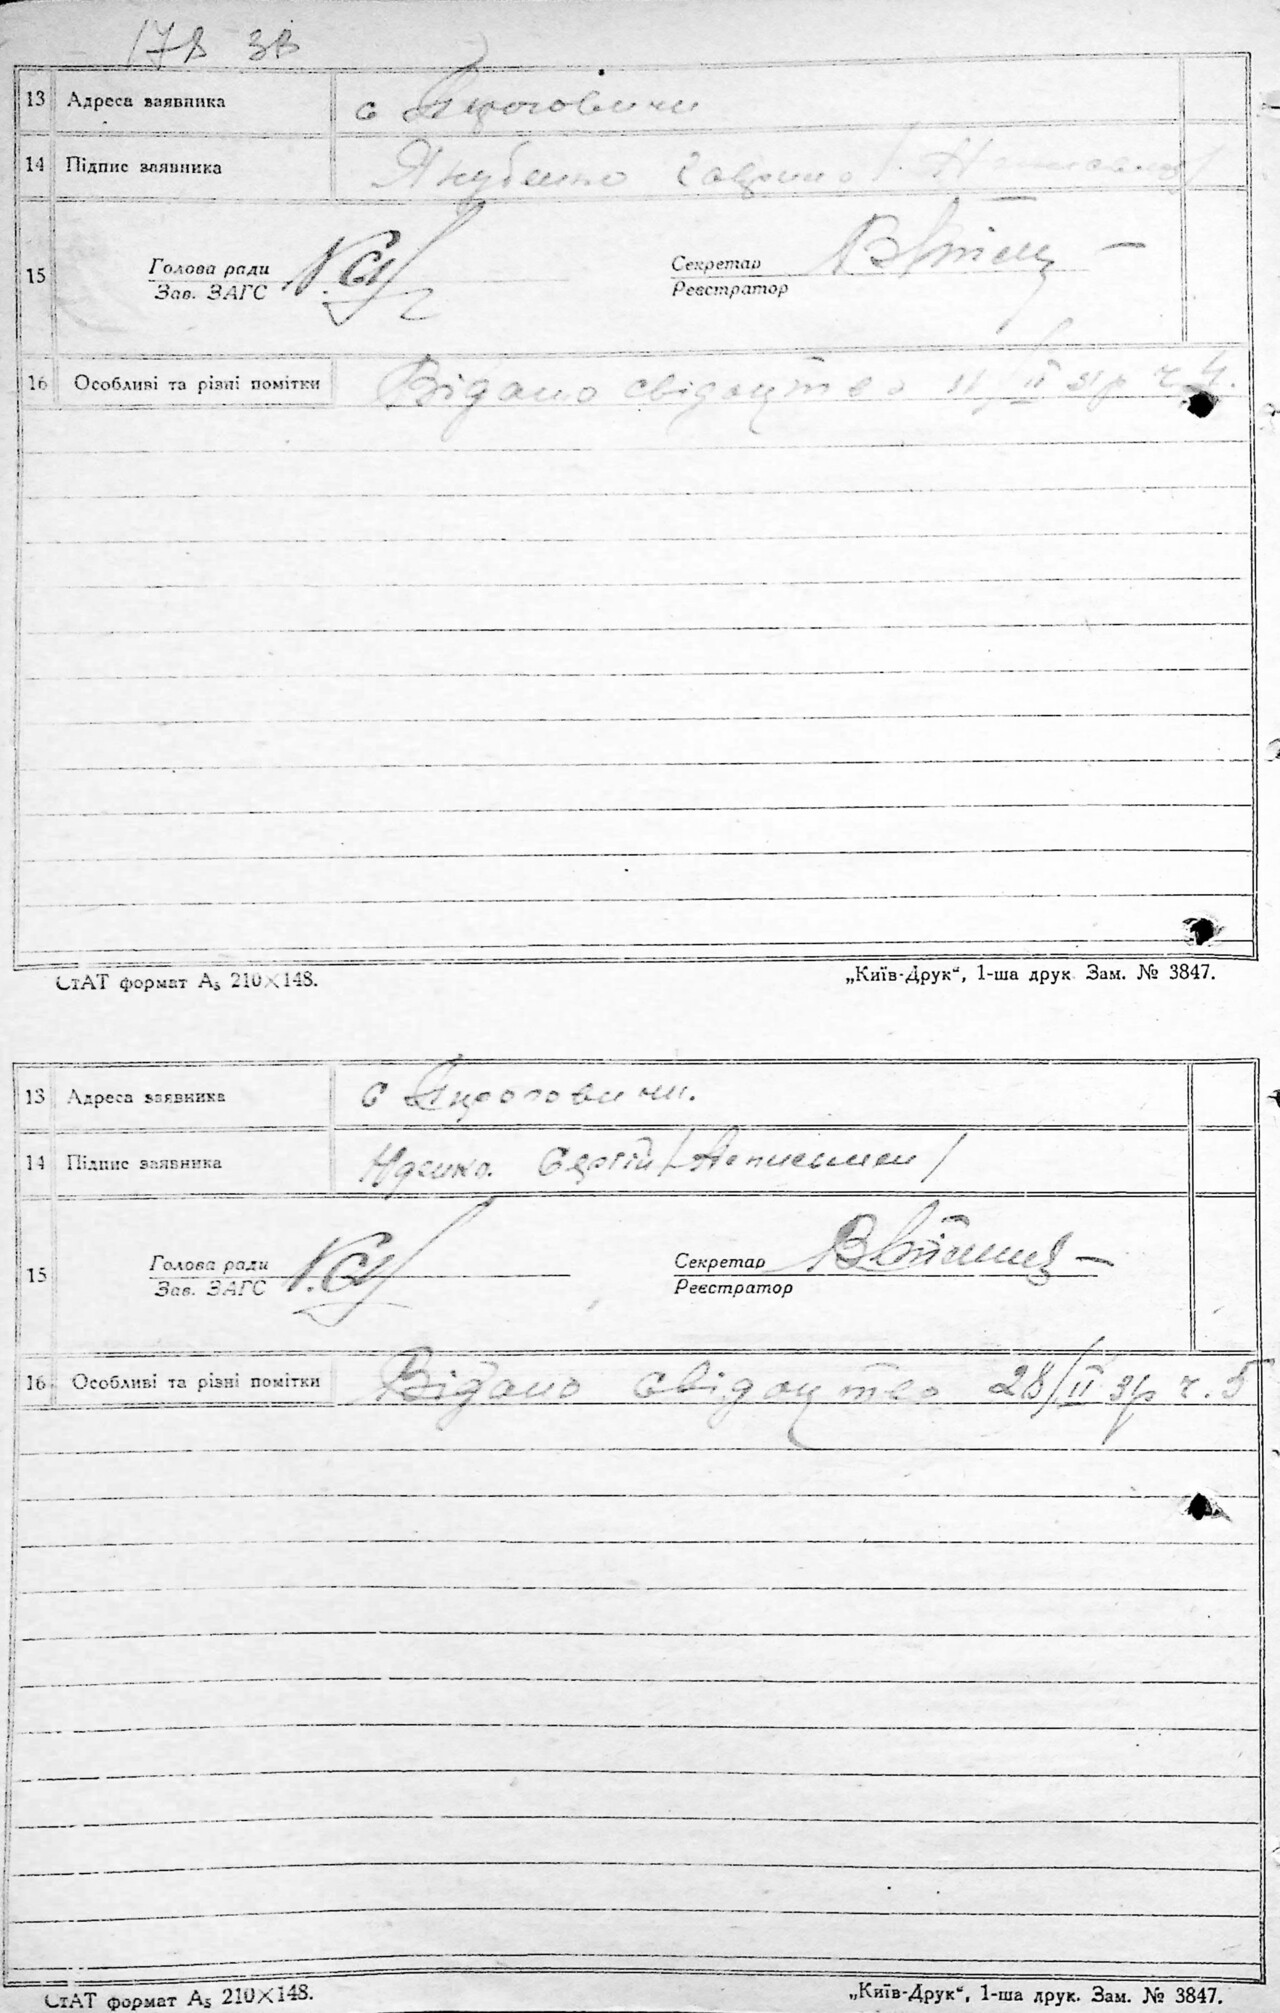 178 зв
13 Адреса заявника с Пироговичи
14 Підпис заявника Якубенко /Неписьмен/
15 Голова ради Секретар
Зав. ЗАГС Реєстратор
16 Особливі та різні помітки Відано свідоцтво 11/II 31р ч. 4.
СтАТ формат А₅ 210×148. „Київ-Друк“, 1-ша друк. Зам. № 3847.
13 Адреса заявника с Пироговичи.
14 Підпис заявника Сергій /Неписьмен/
15 Голова ради Секретар
Зав. ЗАГС Реєстратор
16 Особливі та різні помітки Відано свідоцтво 28/II 31р ч. 5
СтАТ формат А₅ 210×148. „Київ-Друк“, 1-ша друк. Зам. № 3847.